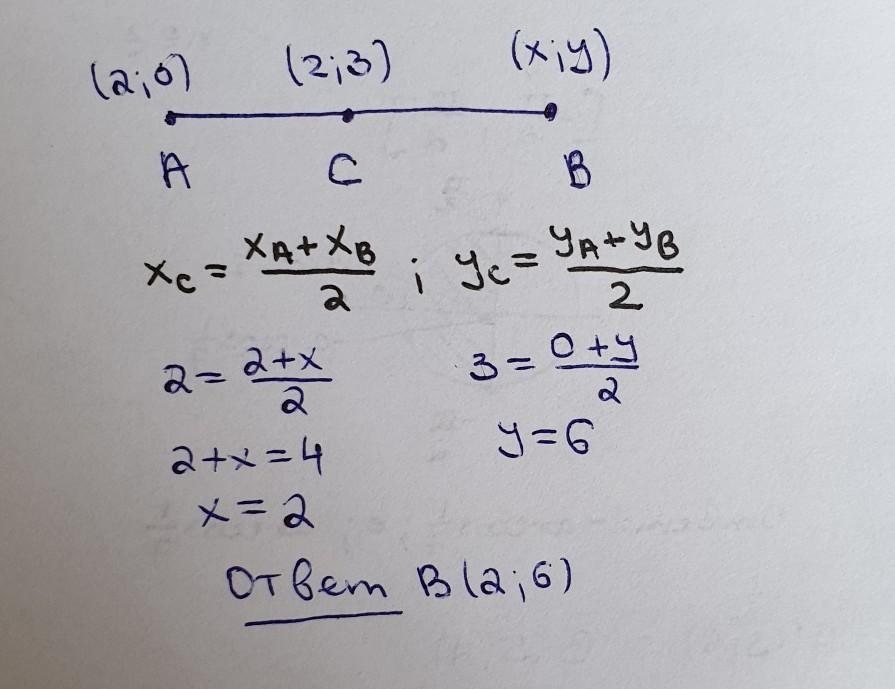 (2;0) (2;3) (x;y)
A C B
x_C = (x_A + x_B)/2 ; y_C = (y_A + y_B)/2
2 = (2+x)/2 3 = (0+y)/2
2+x=4 y=6
x=2
Ответ B(2;6)